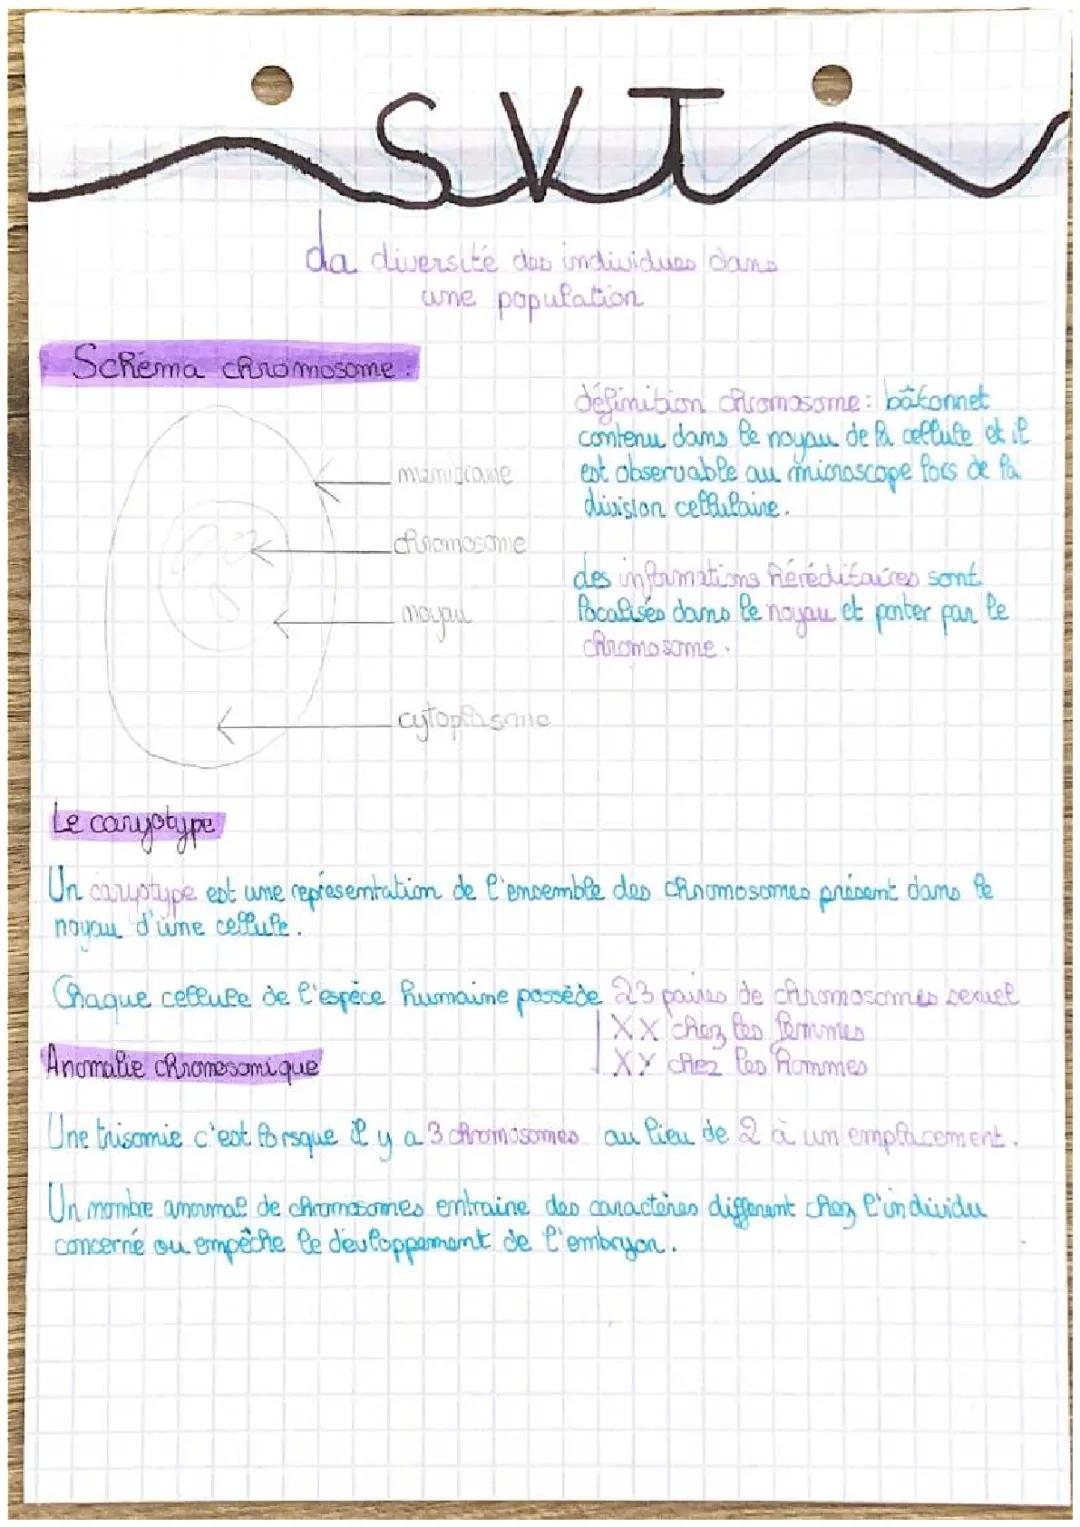 SVT
La diversité des individues dans
une population
Schéma chromosome :
définition chromosome : bâtonnet
contenu dans le noyau de la cellule et il
est observable au microscope lors de la
division cellulaire.
membrane
chromosome
noyau
cytoplasme
des informations héréditaires sont
localisés dans le noyau et porter par le
chromosome.
Le caryotype
Un caryotype est une représentation de l'ensemble des chromosomes présent dans le
noyau d'une cellule.
Chaque cellule de l'espèce humaine possède 23 paires de chromosomes sexuel
XX chez les femmes
XY chez les hommes
Anomalie chromosomique
Une trisomie c'est lorsque il y a 3 chromosomes au lieu de 2 à un emplacement.
Un nombre anormal de chromosomes entraine des caractères différent chez l'individu
concerné ou empêche le développement de l'embryon.